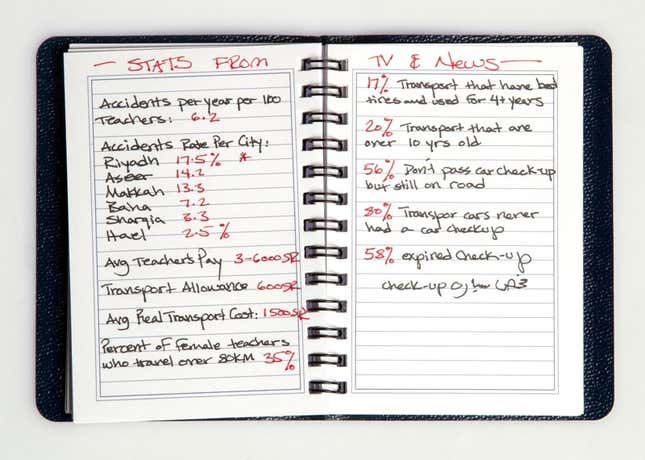 — STATS FROM
Accidents per year per 100
Teachers: 6.2
Accidents Rate Per City:
Riyadh 17.5% *
Aseer 14.2
Makkah 13.3
Baha 7.2
Sharqia 3.3
Hael 2.5%
Avg Teacher's Pay 3-6000SR
Transport Allowance 600SR
Avg Real Transport Cost: 1500SR
Percent of Female teachers
who travel over 80KM 35%
TV & News —
17% Transport that have bad
tires and used for 4+ years
20% Transport that are
over 10 yrs old
56% Don't pass car check-up
but still on road
80% Transpor cars never
had a car checkup
58% expired check-up
check-up